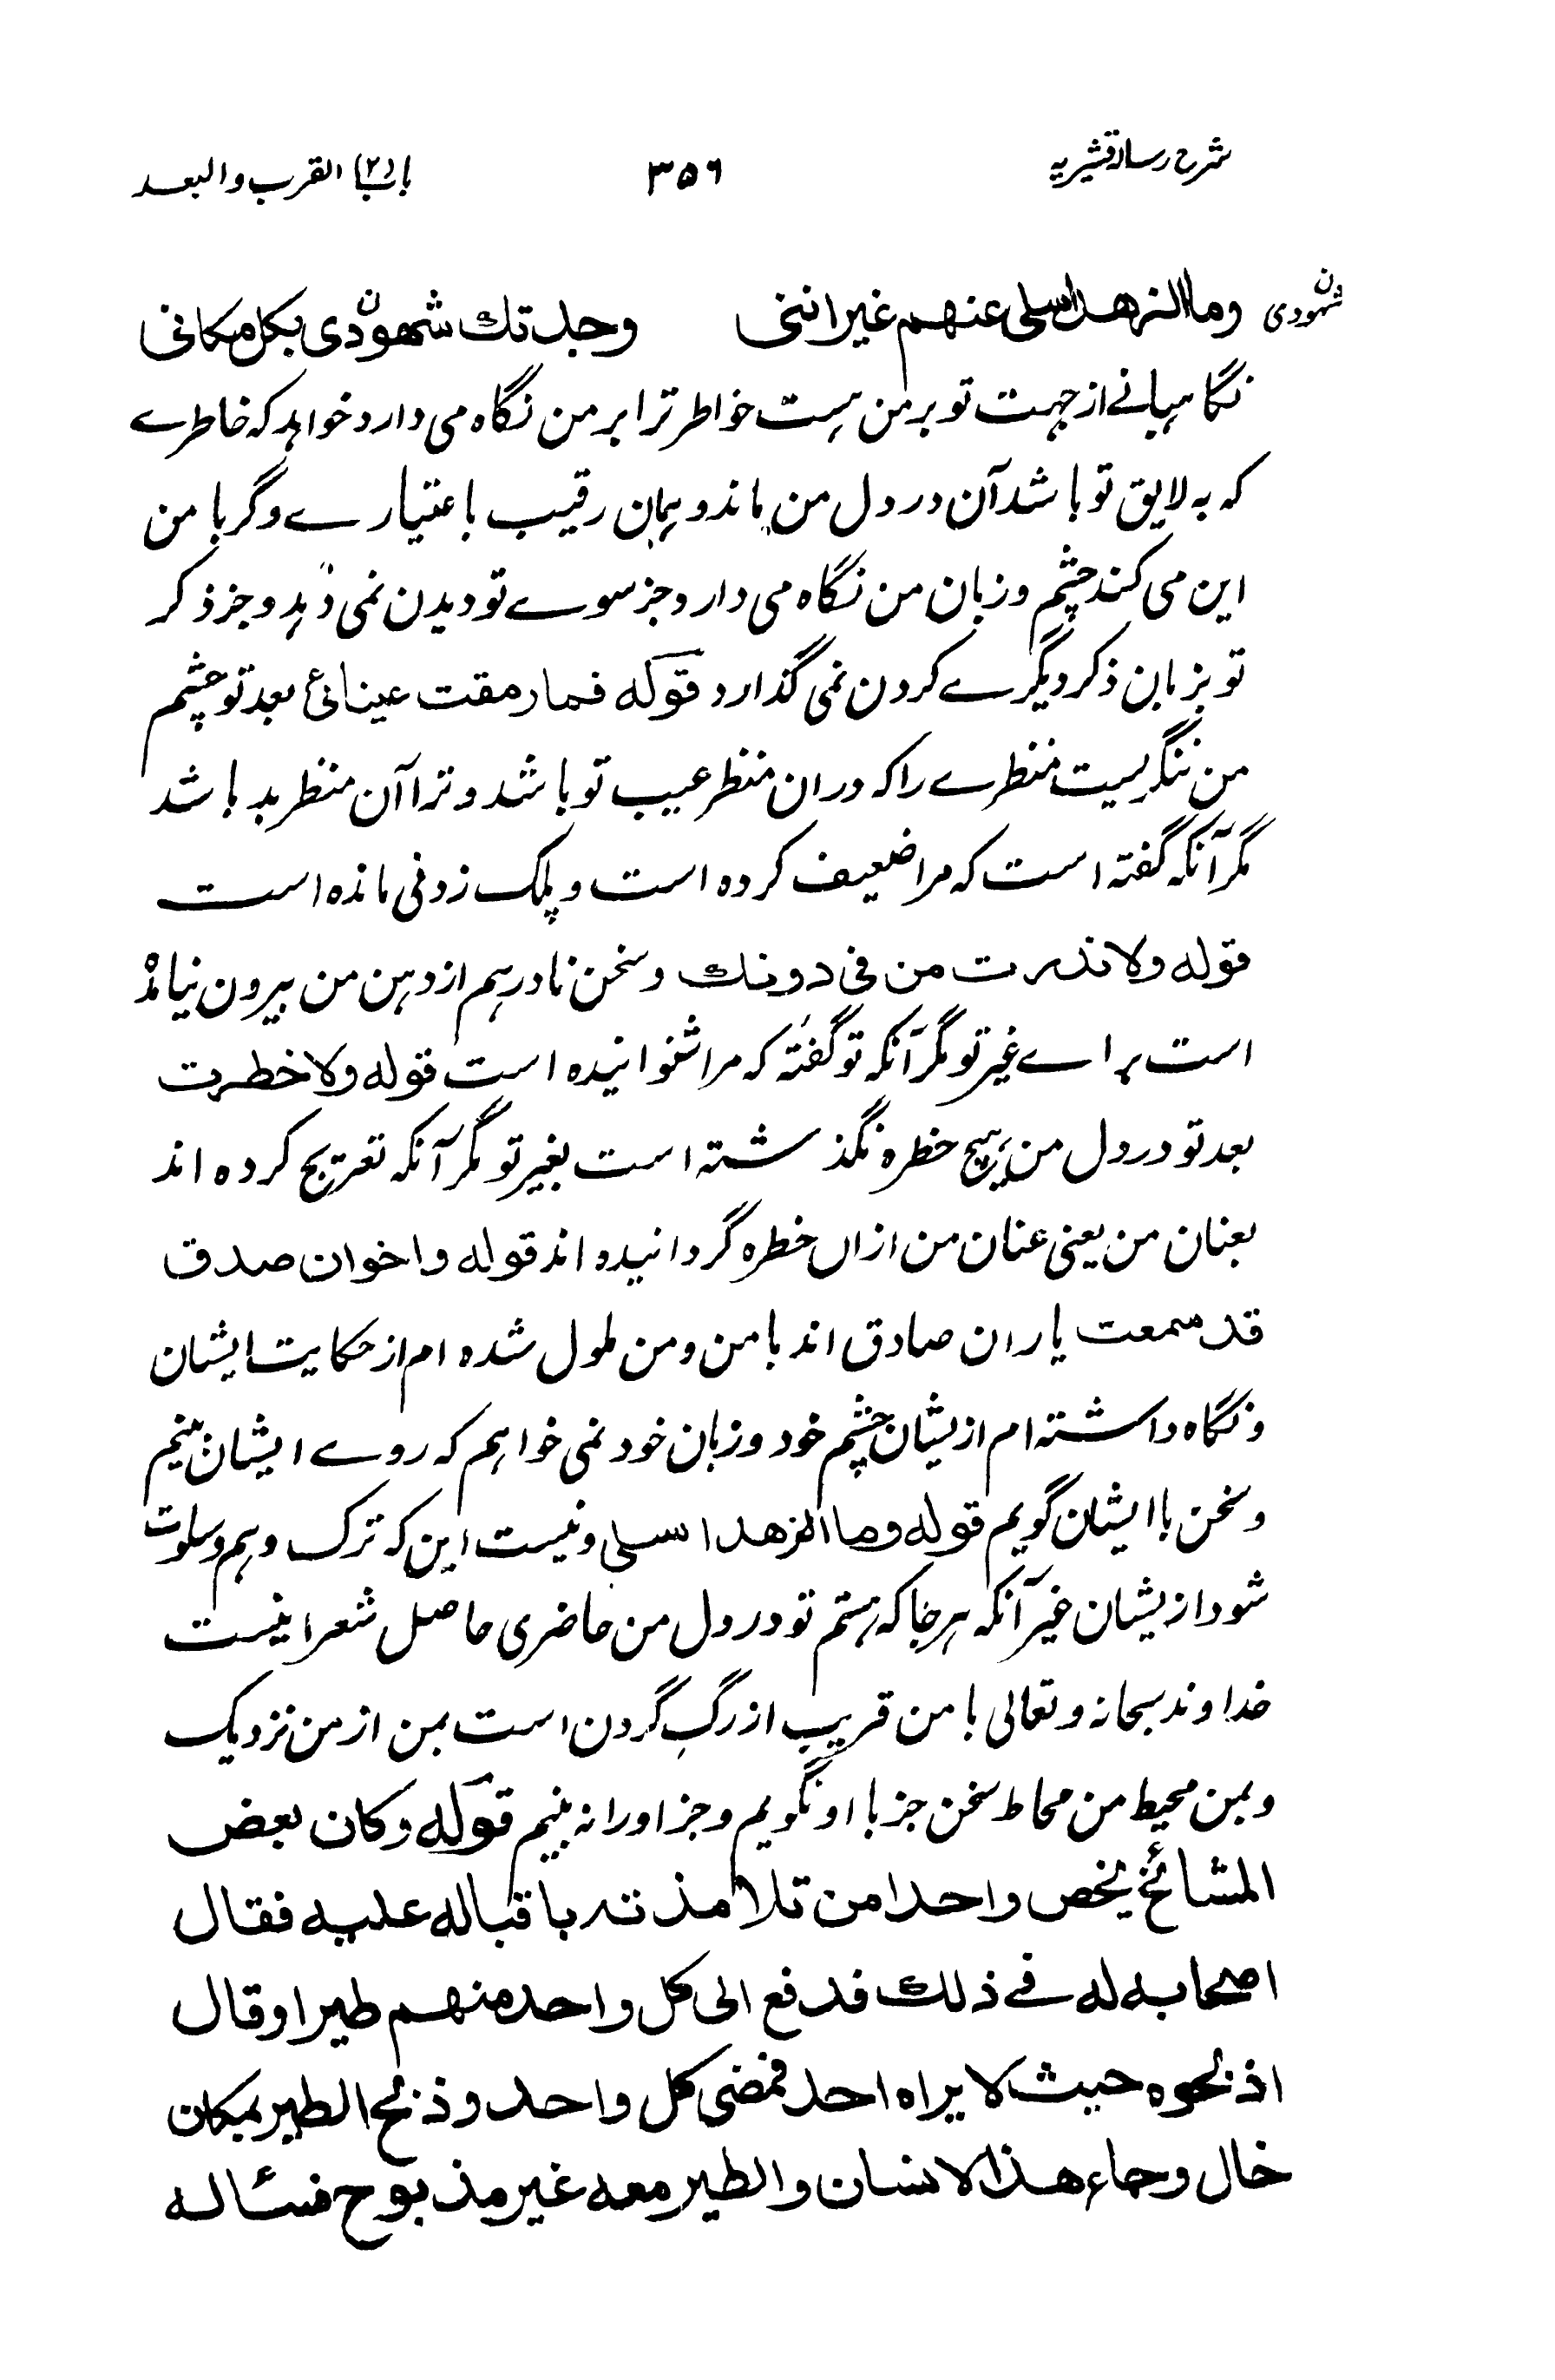 شرح رساله قشیریه ۳۵۶ باب (۲) القرب والبعد
وما الزهد اسلی عنهم غیر اننی وجدتك شهودی بکل مکانی
ن شهودی
نگاهبانے از جهت تو بر من هست خواطر ترا بر من نگاه می دارد خواهد که خاطرے
که به لایق تو باشد آن در دل من ماند و همان رقیب باعتبارے دگر با من
این می کند چشم و زبان من نگاه می دارد جز سوے تو دیدن نمی دهد و جز ذکر
تو بزبان ذکر دیگرے کردن نمی گذارد قوله فما رمقت عینائ بعد تو چشم
من ننگریست منظرے را که دران منظر عیب تو باشد و ترا آن منظر بد باشد
مگر آنکه گفته است که مرا ضعیف کرده است و پلک زدنی مانده است
قوله ولا ندرت من فی دونك و سخن نادر هم از دهن من بیرون نیامده
است براے غیر تو مگر آنکه تو گفتهٔ که مرا شنوانیده است قوله ولا خطرت
بعد تو در دل من هیچ خطره نگذشته است بغیر تو مگر آنکه تعریج کرده اند
بعنان من یعنی عنان من ازاں خطره گردانیده اند قوله واخوان صدق
قد سمعت یاران صادق اند با من و من ملول شده ام از حکایت ایشان
و نگاه داشته ام ازیشان چشم خود و زبان خود نمی خواهم که روے ایشان بینم
و سخن با ایشان گویم قوله وما الزهد اسلی و نیست این که ترک دهم و سلوت
شود ازیشان غیر آنکه هر جا که هستم تو در دل من حاضری حاصل شعر اینست
خداوند سبحانه و تعالی با من قریب از رگ گردن است بمن از من نزدیک
و بمن محیط من محاط سخن جز با او نگویم و جز او را نه بینم قوله وکان بعض
المشائخ یخص واحدا من تلامذته باقباله علیه فقال
اصحابه له فے ذلك فدفع الی کل واحد منهم طیرا وقال
اذبحوه حیث لا یراه احد فمضی کل واحد وذبح الطیر بمکان
خال وجاء هذا الانسان والطیر معه غیر مذبوح فسئاله